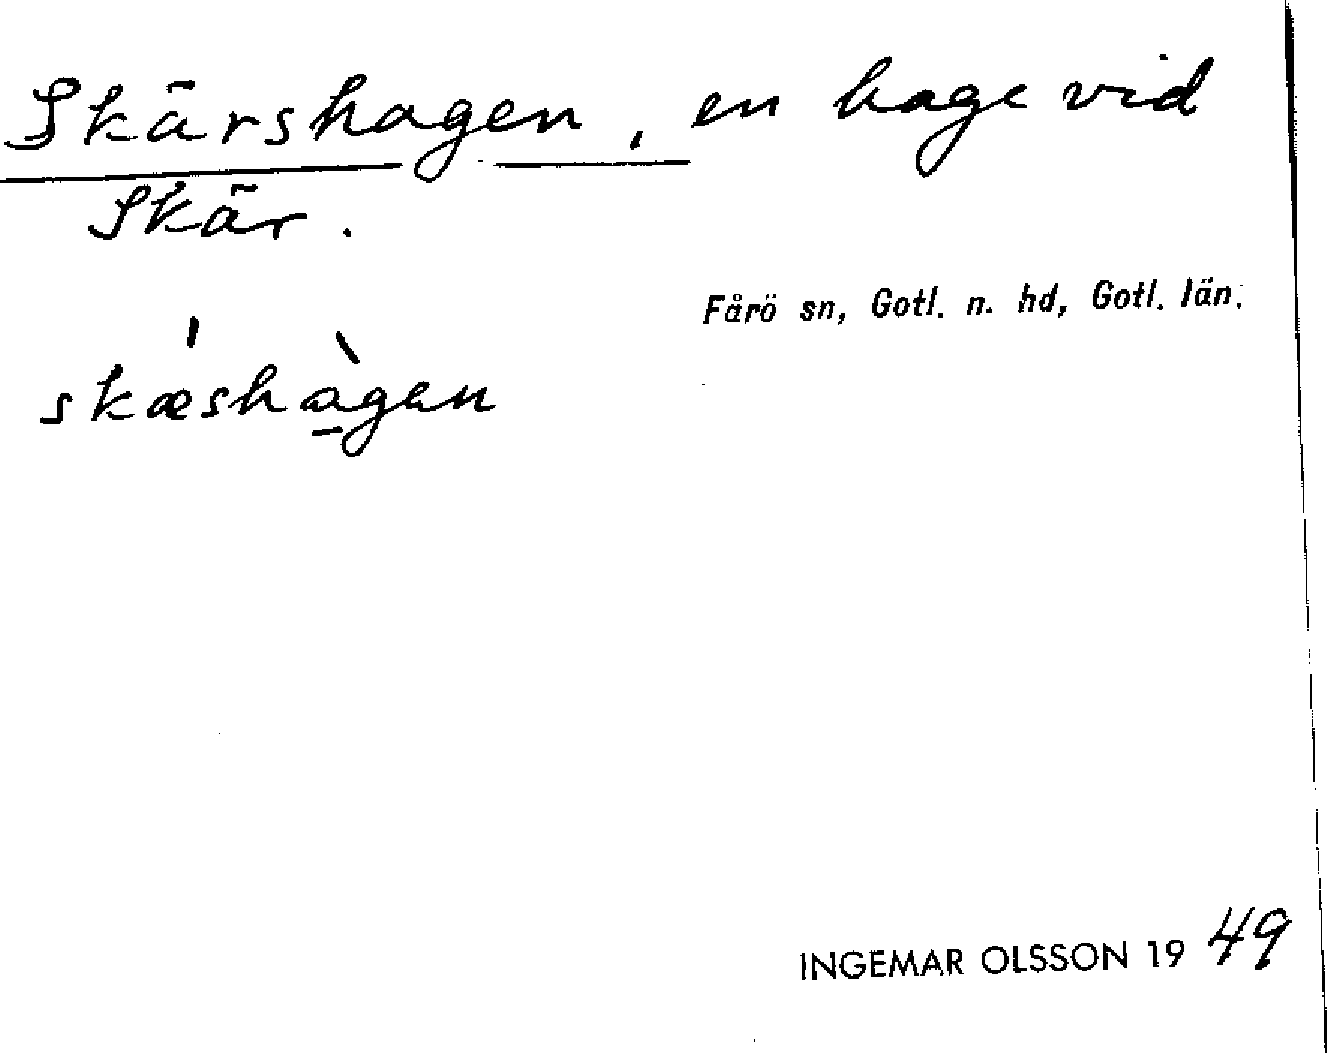 Skärshagen, en hage vid
Skär.
Fårö sn, Gotl. n. hd, Gotl. län.
skæshàgen
INGEMAR OLSSON 1949